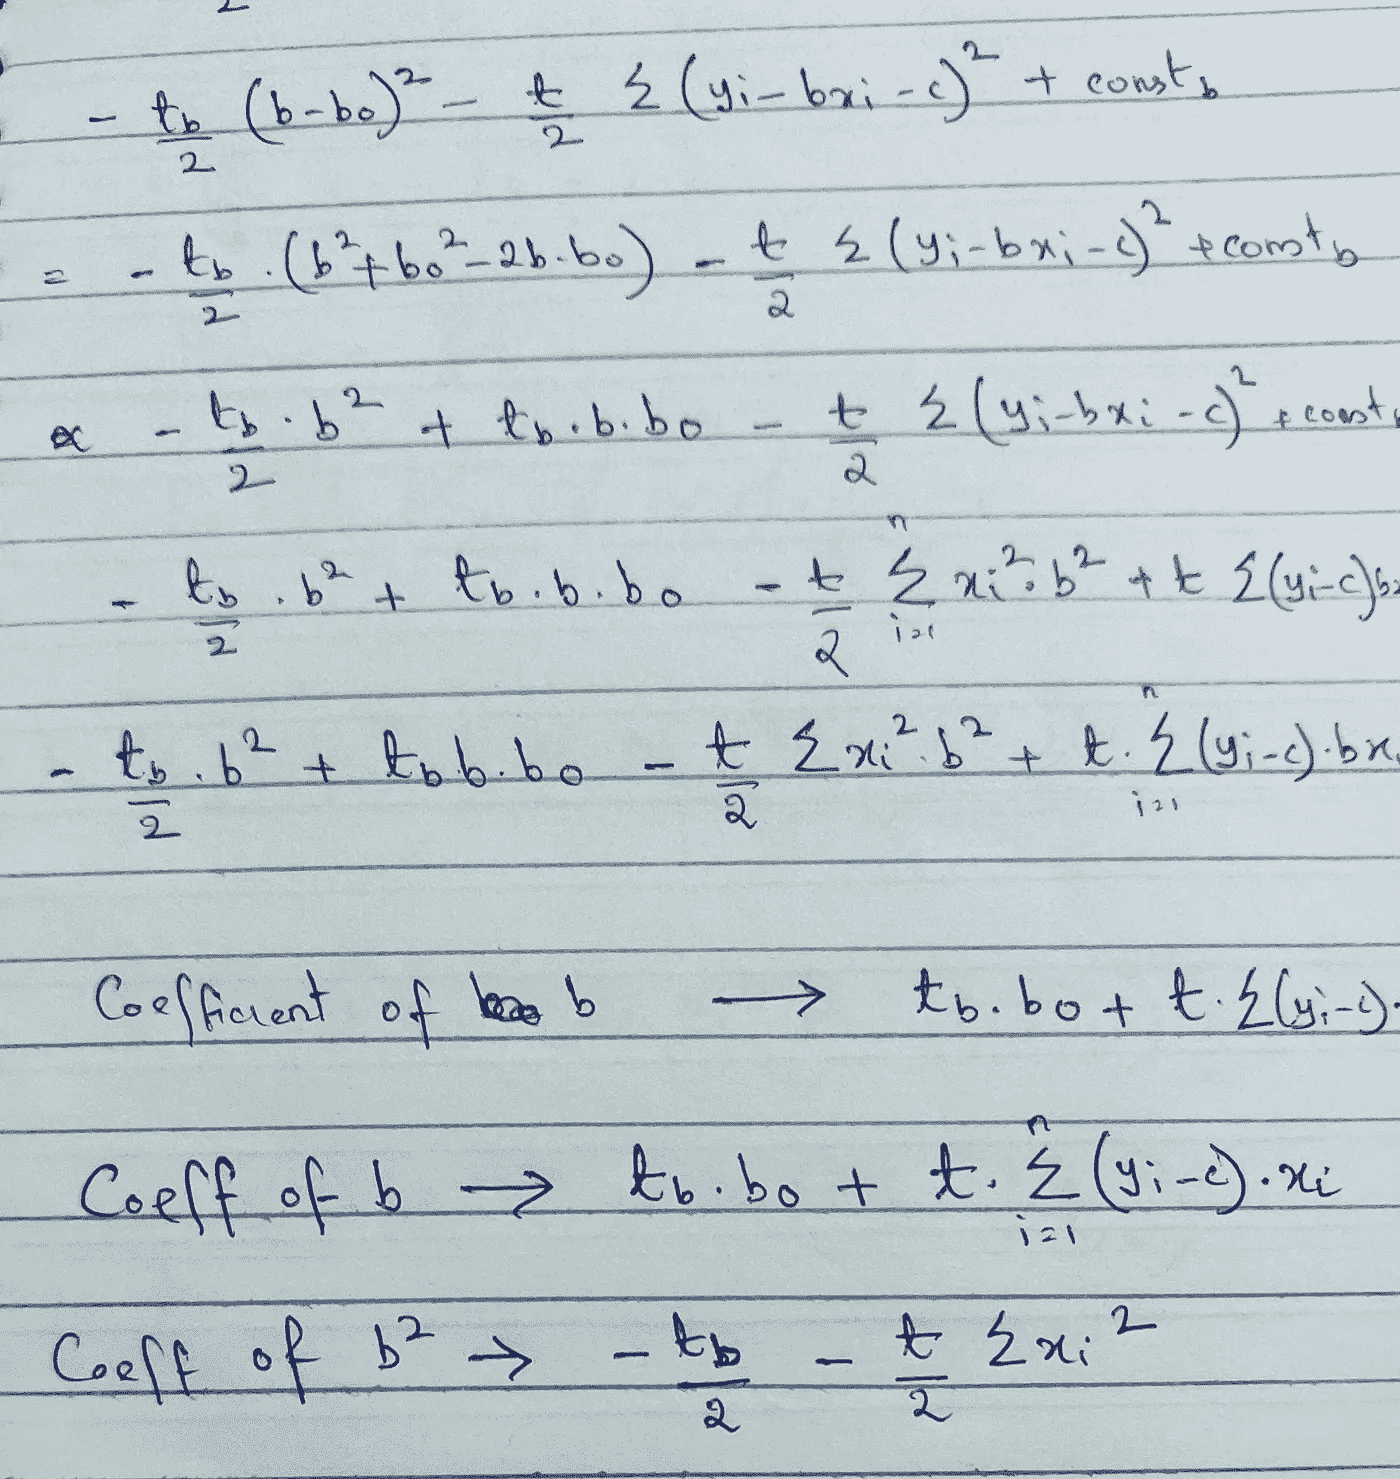 - t_b/2 (b-b_0)^2 - t/2 Σ (y_i - bx_i - c)^2 + const_b
= - t_b/2 . (b^2 + b_0^2 - 2b.b_0) - t/2 Σ (y_i - bx_i - c)^2 + const_b
∝ - t_b/2 . b^2 + t_b.b.b_0 - t/2 Σ (y_i - bx_i - c)^2 + const
- t_b/2 . b^2 + t_b.b.b_0 - t/2 Σ_{i=1}^n x_i^2 . b^2 + t Σ(y_i-c)b
- t_b/2 . b^2 + t_b.b.b_0 - t/2 Σ x_i^2 . b^2 + t. Σ_{i=1}^n (y_i-c).bx
Coefficient of b → t_b.b_0 + t. Σ(y_i-c).
Coeff of b → t_b.b_0 + t. Σ_{i=1}^n (y_i-c).x_i
Coeff of b^2 → - t_b/2 - t/2 Σ x_i^2